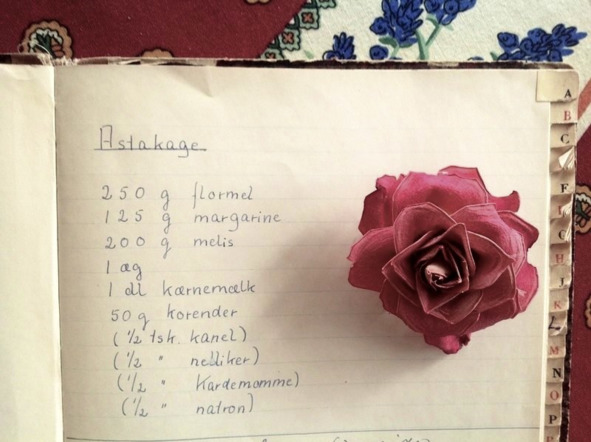 Astakage
250 g flormel
125 g margarine
200 g melis
1 æg
1 dl kærnemælk
50 g korender
(1/2 tsk. kanel)
(1/2 " nelliker)
(1/2 " Kardemomme)
(1/2 " natron)
A
B
C
E
G
H
J
K
L
M
N
O
P